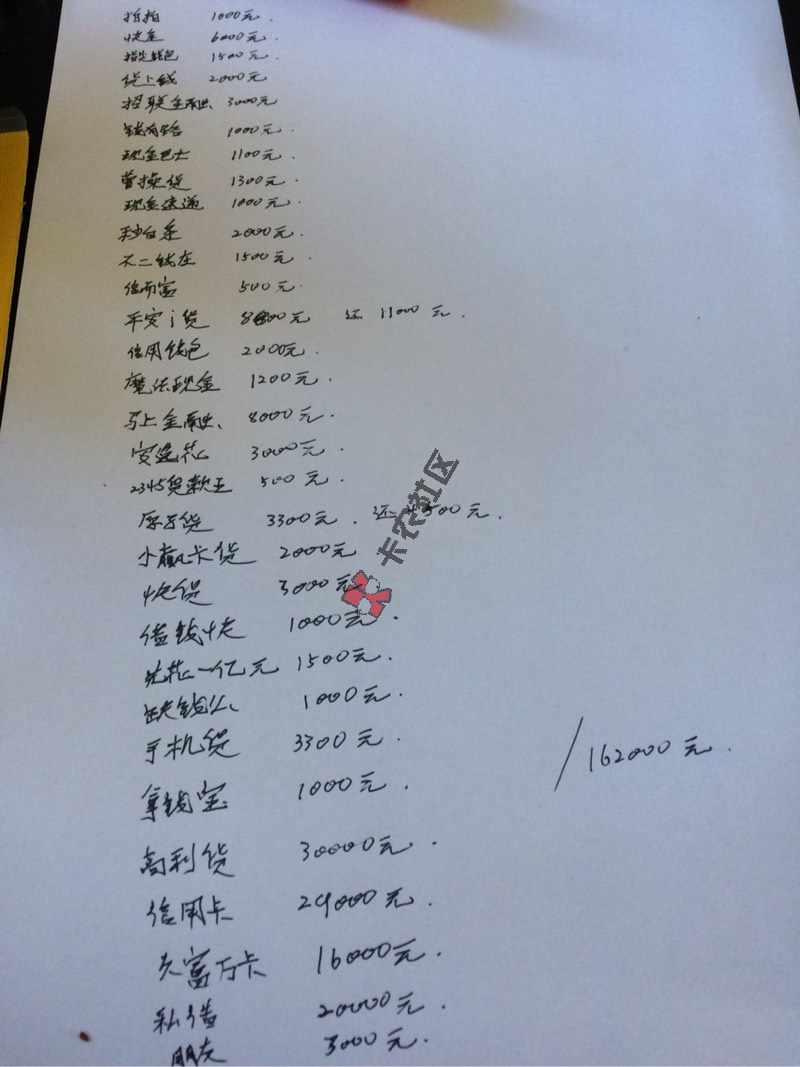 拍拍 1000元.
快金 6000元.
指尖钱包 1500元.
贷上钱 2000元
招联金融 3000元
钱有路 1000元.
现金巴士 1100元.
曹操贷 1300元.
现金速递 1000元.
秒白条 2000元.
不二钱庄 1500元.
信而富 500元.
平安i贷 8800元 还 11000元.
信用钱包 2000元.
魔法现金 1200元.
马上金融 8000元.
安逸花 3000元.
2345贷款王 500元.
原子贷 3300元. 还4500元.
小赢卡贷 2000元
快贷 3000元
借钱快 1000元.
先花一亿元 1500元.
缺钱么 1000元.
手机贷 3300元.
/162000元.
拿钱宝 1000元.
高利贷 30000元.
信用卡 29000元.
久富万卡 16000元.
私借 20000元.
朋友 3000元.
卡农社区